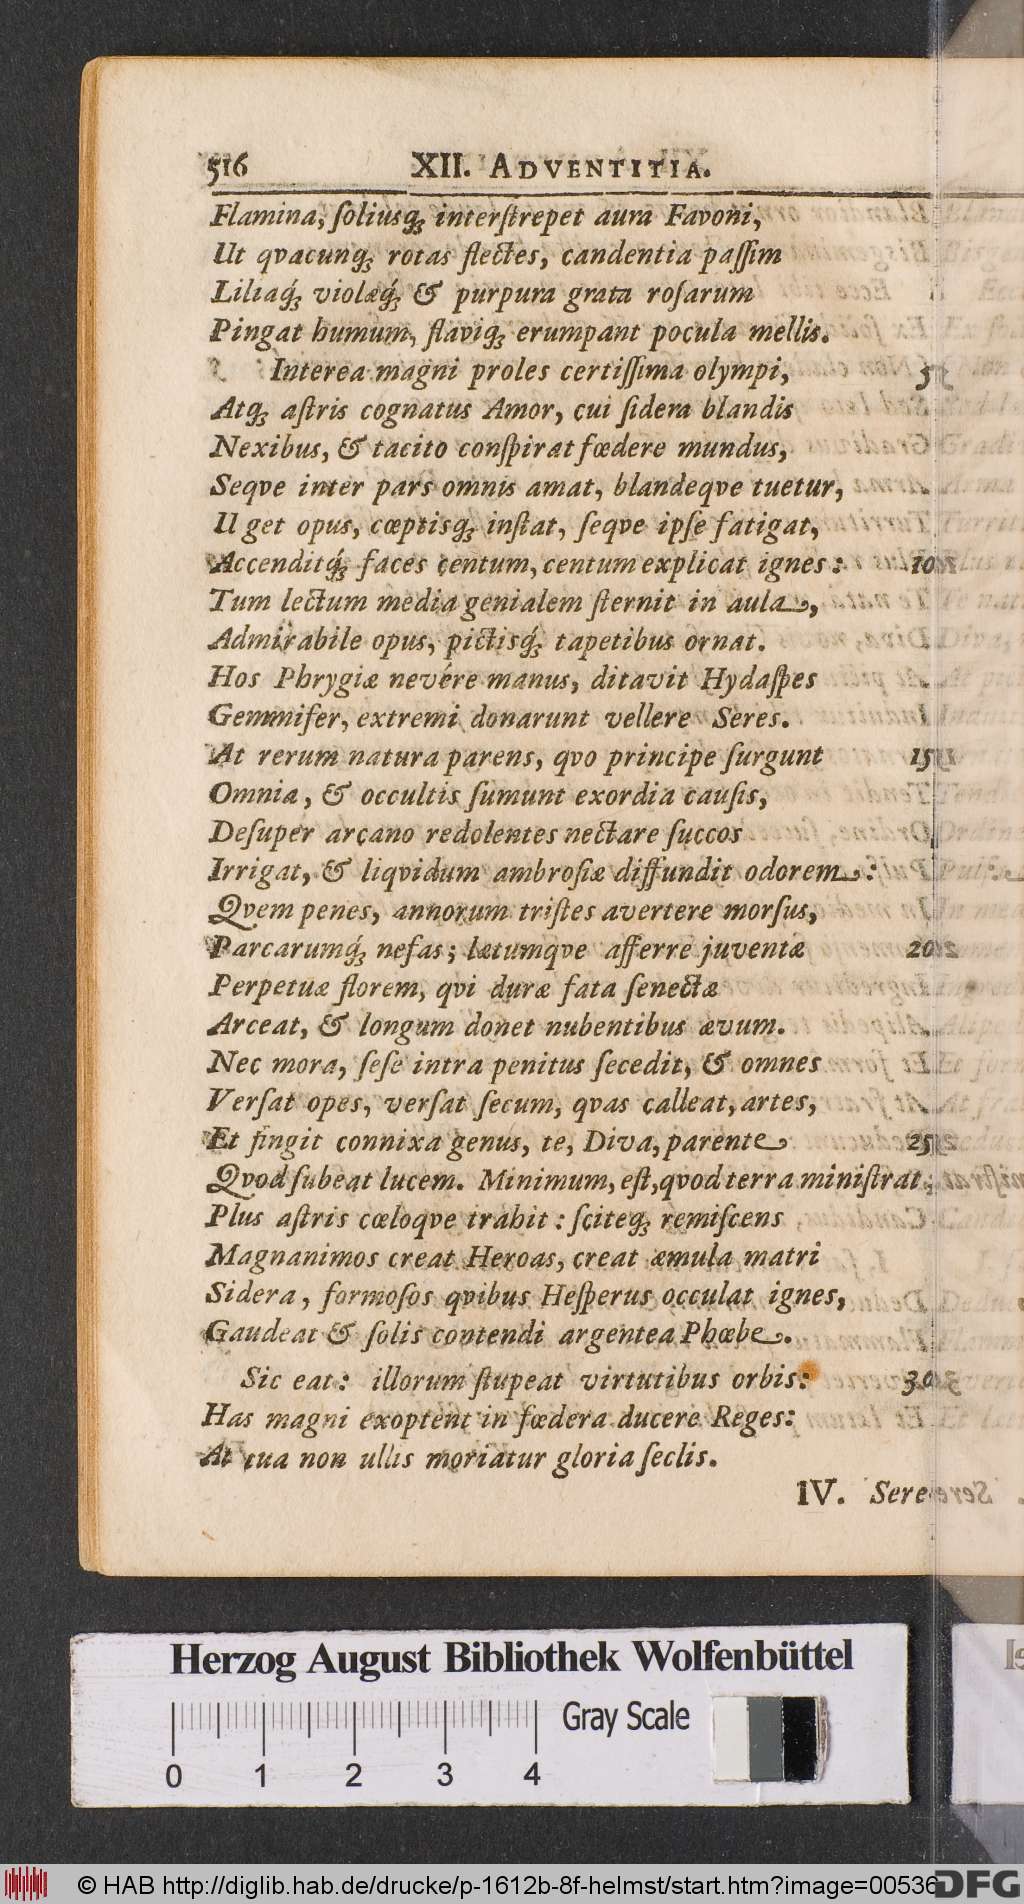 516 XII. ADVENTITIA.
Flamina, ſoliusq; interſtrepet aura Favoni,
Ut qvacunq; rotas flectes, candentia paſſim
Liliaq́; violæq́; & purpura grata roſarum
Pingat humum, flaviq; erumpant pocula mellis.
Interea magni proles certiſſima olympi, 5
Atq; aſtris cognatus Amor, cui ſidera blandis
Nexibus, & tacito conſpirat fœdere mundus,
Seqve inter pars omnis amat, blandeqve tuetur,
Urget opus, cœptisq; inſtat, ſeqve ipſe fatigat,
Accenditq́; faces centum, centum explicat ignes: 10
Tum lectum media genialem ſternit in aula,
Admirabile opus, pictisq́; tapetibus ornat.
Hos Phrygiæ nevére manus, ditavit Hydaſpes
Gemmifer, extremi donarunt vellere Seres.
At rerum natura parens, qvo principe ſurgunt 15
Omnia, & occultis ſumunt exordia cauſis,
Deſuper arcano redolentes nectare ſuccos
Irrigat, & liqvidum ambroſiæ diffundit odorem:
Qvem penes, annorum triſtes avertere morſus,
Parcarumq́; nefas; lætumqve afferre juventæ 20
Perpetuæ florem, qvi duræ fata ſenectæ
Arceat, & longum donet nubentibus ævum.
Nec mora, ſeſe intra penitus ſecedit, & omnes
Verſat opes, verſat ſecum, qvas calleat, artes,
Et fingit connixa genus, te, Diva, parente 25
Qvod ſubeat lucem. Minimum, eſt, qvod terra miniſtrat;
Plus aſtris cœloqve trahit: ſciteq; remiſcens
Magnanimos creat Heroas, creat æmula matri
Sidera, formoſos qvibus Heſperus occulat ignes,
Gaudeat & ſolis contendi argentea Phœbe.
Sic eat: illorum ſtupeat virtutibus orbis: 30
Has magni exoptent in fœdera ducere Reges:
At tua non ullis moriatur gloria ſeclis.
IV. Sere-
Herzog August Bibliothek Wolfenbüttel
Gray Scale
0 1 2 3 4
© HAB http://diglib.hab.de/drucke/p-1612b-8f-helmst/start.htm?image=00536
DFG